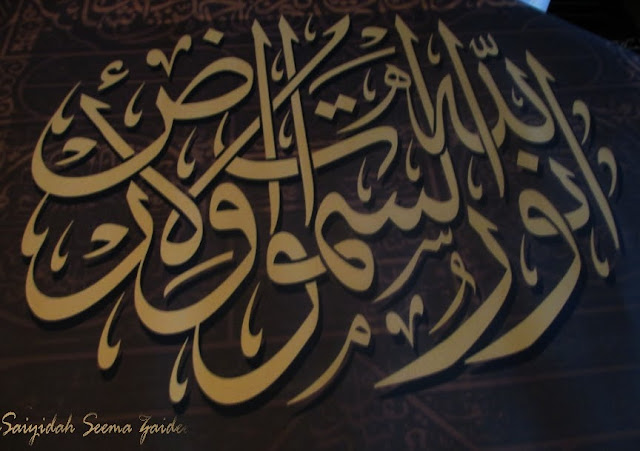 الله نور السموات والارض
Saiyidah Seema Zaidee